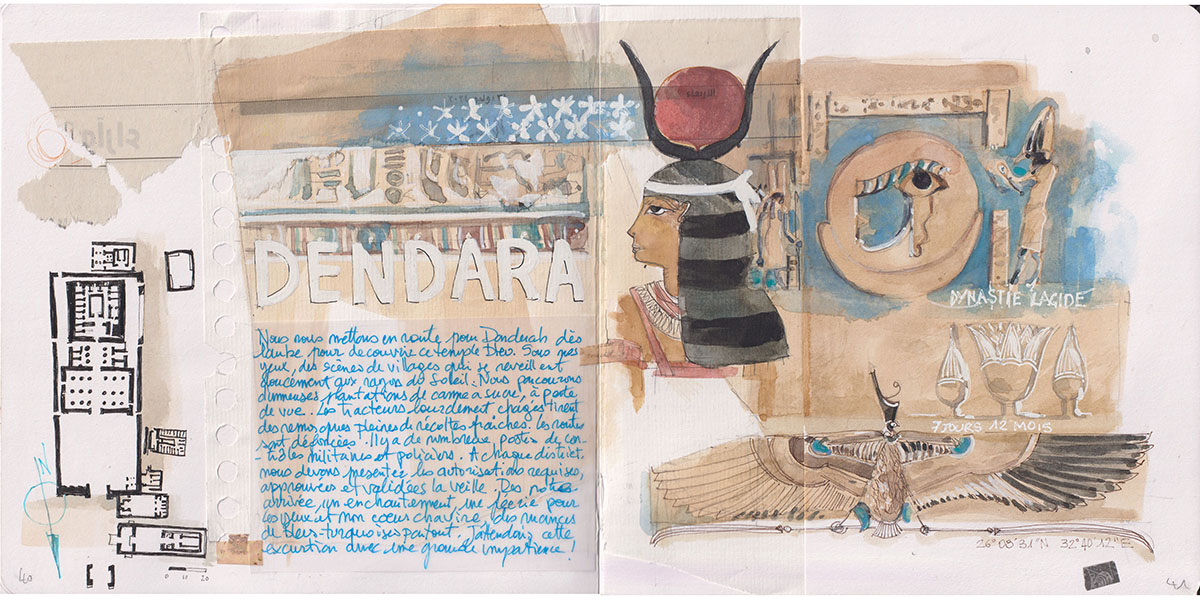 الأربعاء
DENDARA
Nous nous mettons en route pour Denderah dès
l'aube pour découvrir ce temple Dieu. Sous nos
yeux, des scènes de villages qui se reveil est
doucement aux rayons du Soleil. Nous parcourons
d'immenses plantations de canne a sucre, à perte
de vue. Les tracteurs lourdement chargés tirent
des remorques pleines de récoltes fraîches. Les routes
sont défoncées ! Il y a de nombreux postes de con-
-trôles militaires et policiers. A chaque district
nous devons presenter les autorisations requises,
approuvées et validées la veille. Des notre
arrivée, un enchantement, une féérie pour
les yeux et mon coeur chavire, des nuances
de bleus-turquoises partout. J'attendais cette
excursion avec une grande impatience !
N
0 10 20
40
DYNASTIE LAGIDE
7 JOURS 12 MOIS
26°08'31"N 32°40'12"E
41